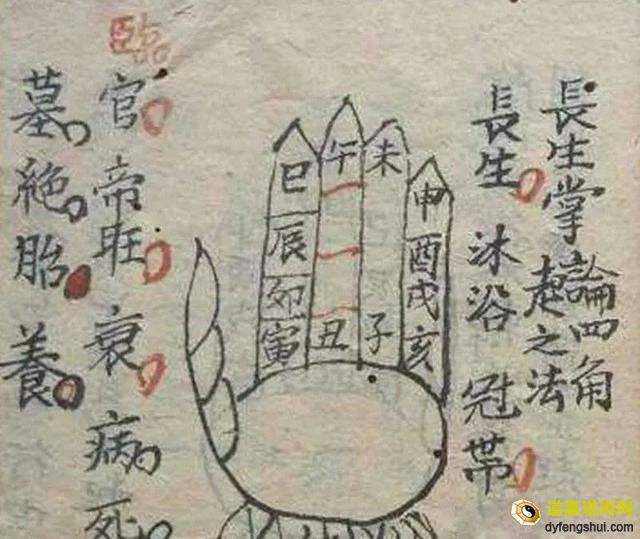 長生掌論四角
起之法
長生 沐浴 冠帶
臨
官帝旺衰病死
墓絕胎養
巳 午 未 申
辰 酉
卯 戌
寅 丑 子 亥
dyfengshui.com